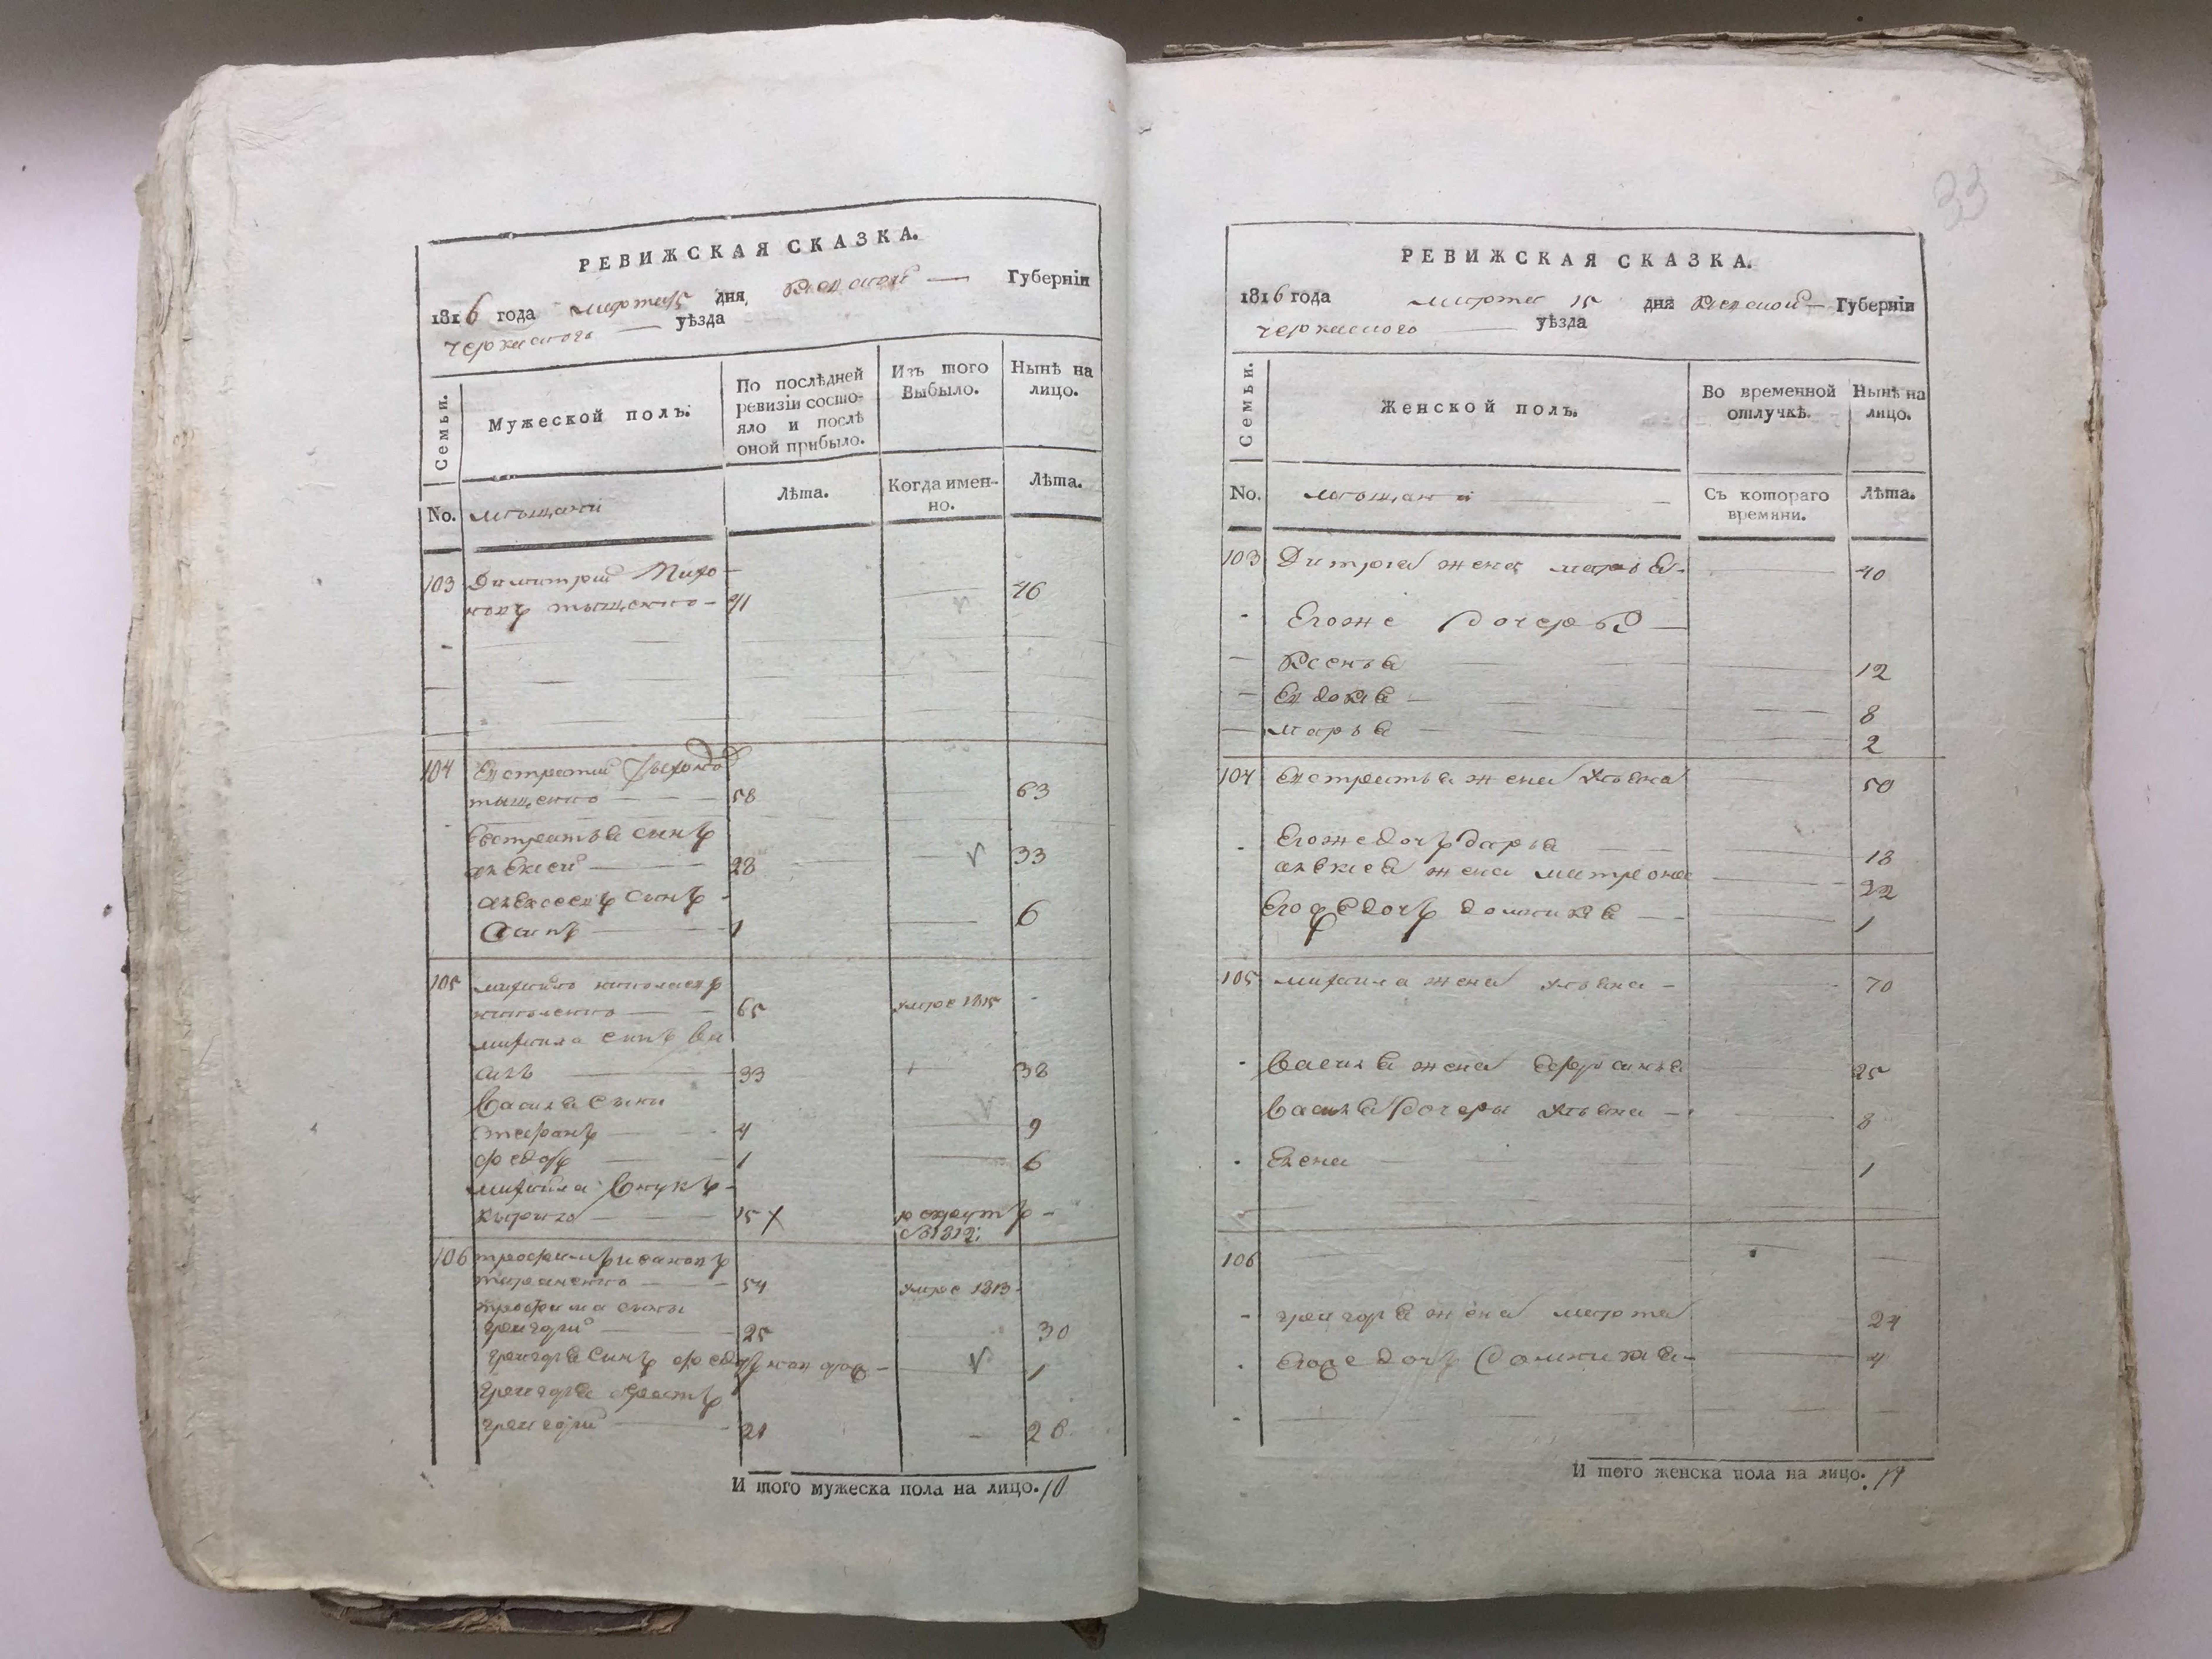 РЕВИЖСКАЯ СКАЗКА.
1816 года марта 15 дня Киевской Губернїи
черкаского уѣзда
Семьи.
Мужеской полъ.
По послѣдней ревизїи состо-яло и послѣ оной прибыло.
Изъ того Выбыло.
Нынѣ на лицо.
No.
мѣщани
Лѣта.
Когда имен-но.
Лѣта.
103 Димитрий
тыщенко 41 46
104 Евстратий
тыщенко 58 63
Евстратѣа синъ
алексей 28 33
алексеевъ синъ
Осипъ 1 6
105 михайло николаевъ
николенко 65 умре 1815
михаила синъ Ва
силъ 33 38
Василѣа сыни
стефанъ 4 9
федоръ 1 6
михаила внукъ
кырило 15 рекрутъ
в 1812:
106 трофимъ
54 умре 1813
трофима сыны
григорий 25 30
григорѣа синъ федоръ 1
григорѣа братъ
григорий 21 26
И того мужеска пола на лицо. 10
33
РЕВИЖСКАЯ СКАЗКА.
1816 года марта 15 дня Киевской Губернїи
черкаского уѣзда
Семьи.
Женской полъ.
Во временной отлучкѣ.
Нынѣ на лицо.
No.
мѣщани
Съ котораго времяни.
Лѣта.
103 Дитриа жена марѣа 40
Егоже дочерѣ
Ксенѣа 12
Евдокиа 8
марѣа 2
104 Евстратѣа жена улѣана 50
Егоже дочъ дарѣа 18
алексеа жена матрона 22
Егоже дочъ домникиа 1
105 михаила жена улѣана 70
Василѣа жена 25
Василѣа дочери улѣана 8
Елена 1
106
григорѣа жена марта 24
Егоже дочъ домникиа 4
И того женска пола на лицо. 14